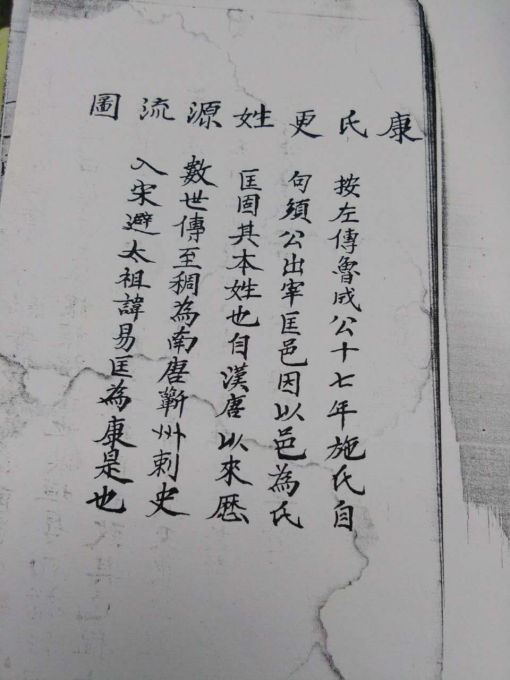 康氏更姓源流圖
按左傳魯成公十七年施氏自
句須公出宰匡邑因以邑為氏
匡固其本姓也自漢唐以來歷
數世傳至稠為南唐蘄州刺史
入宋避太祖諱易匡為康是也